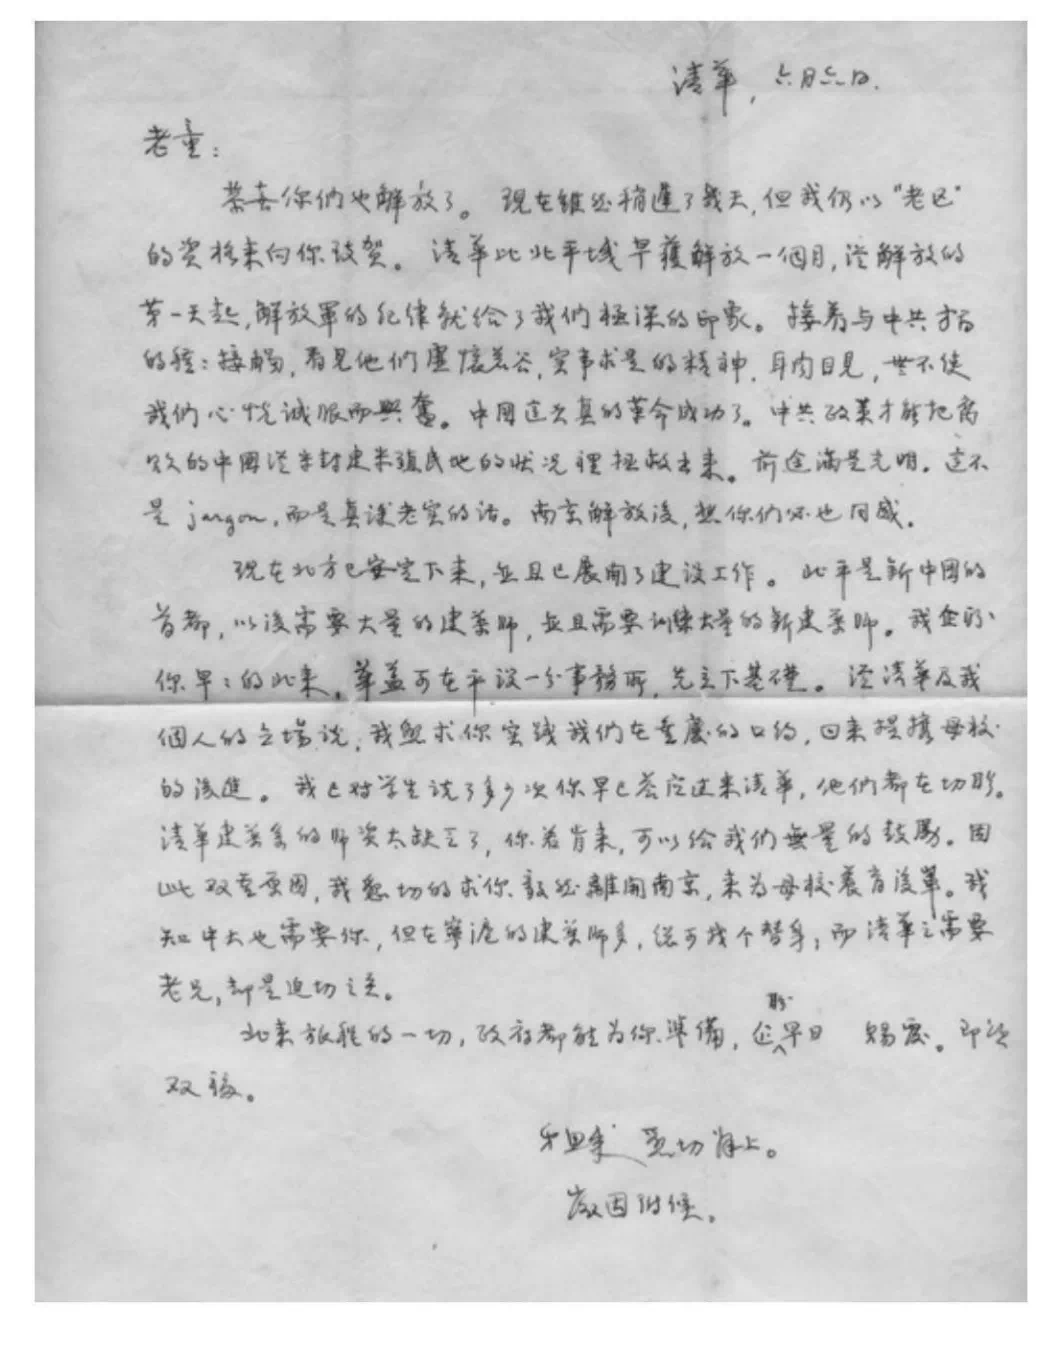 清華，六月六日.
老童：
恭喜你們也解放了。現在雖然稍遲了幾天,但我仍以"老区"
的资格来向你致賀。清華比北平城早獲解放一個月,從解放的
第一天起,解放軍的纪律就给了我们極深的印象。接着与中共方面
的種:接觸,看見他们虛懷若谷,实事求是的精神,耳闻目见,無不使
我们心悦诚服而興奮。中国这次真的革命成功了。中共政策才能把
的中國從半封建半殖民地的状况裡拯救出来。前途满是光明。这不
是 jargon,而是真诚老实的话。南京解放後,想你们必也同感.
现在北方已安定下来,並且已展開了建设工作。北平是新中國的
首都,以後需要大量的建築師,並且需要训练大量的新建築师。我企盼
你早:的北来。華盖可在平设一分事務所,先立下基礎。從清華及我
個人的立場说,我恳求你实践我们在重慶的口约,回来提携母校
的後進。我已对学生说了多少次你早已答应过来清華,他们都在切盼。
清華建築系的师资太缺乏了,你若肯来,可以给我们無量的鼓勵。因
此双重原因,我懇切的求你毅然離開南京,来为母校養育後輩。我
知中大也需要你,但在寧滬的建築师多,總可找个替身;而清華之需要
老兄,却是迫切之至。
北来旅程的一切,政府都能为你準備,企盼早日 賜覆。即颂
双禧。
弟思成 懇切拜上。
徽因附候.